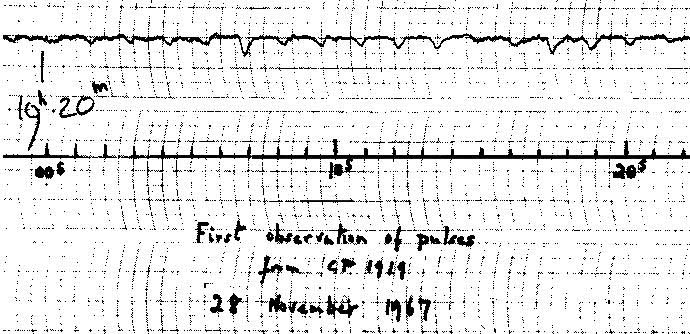 19ʰ 20ᵐ
00ˢ 10ˢ 20ˢ
First observation of pulses
from CP 1919
28 November 1967